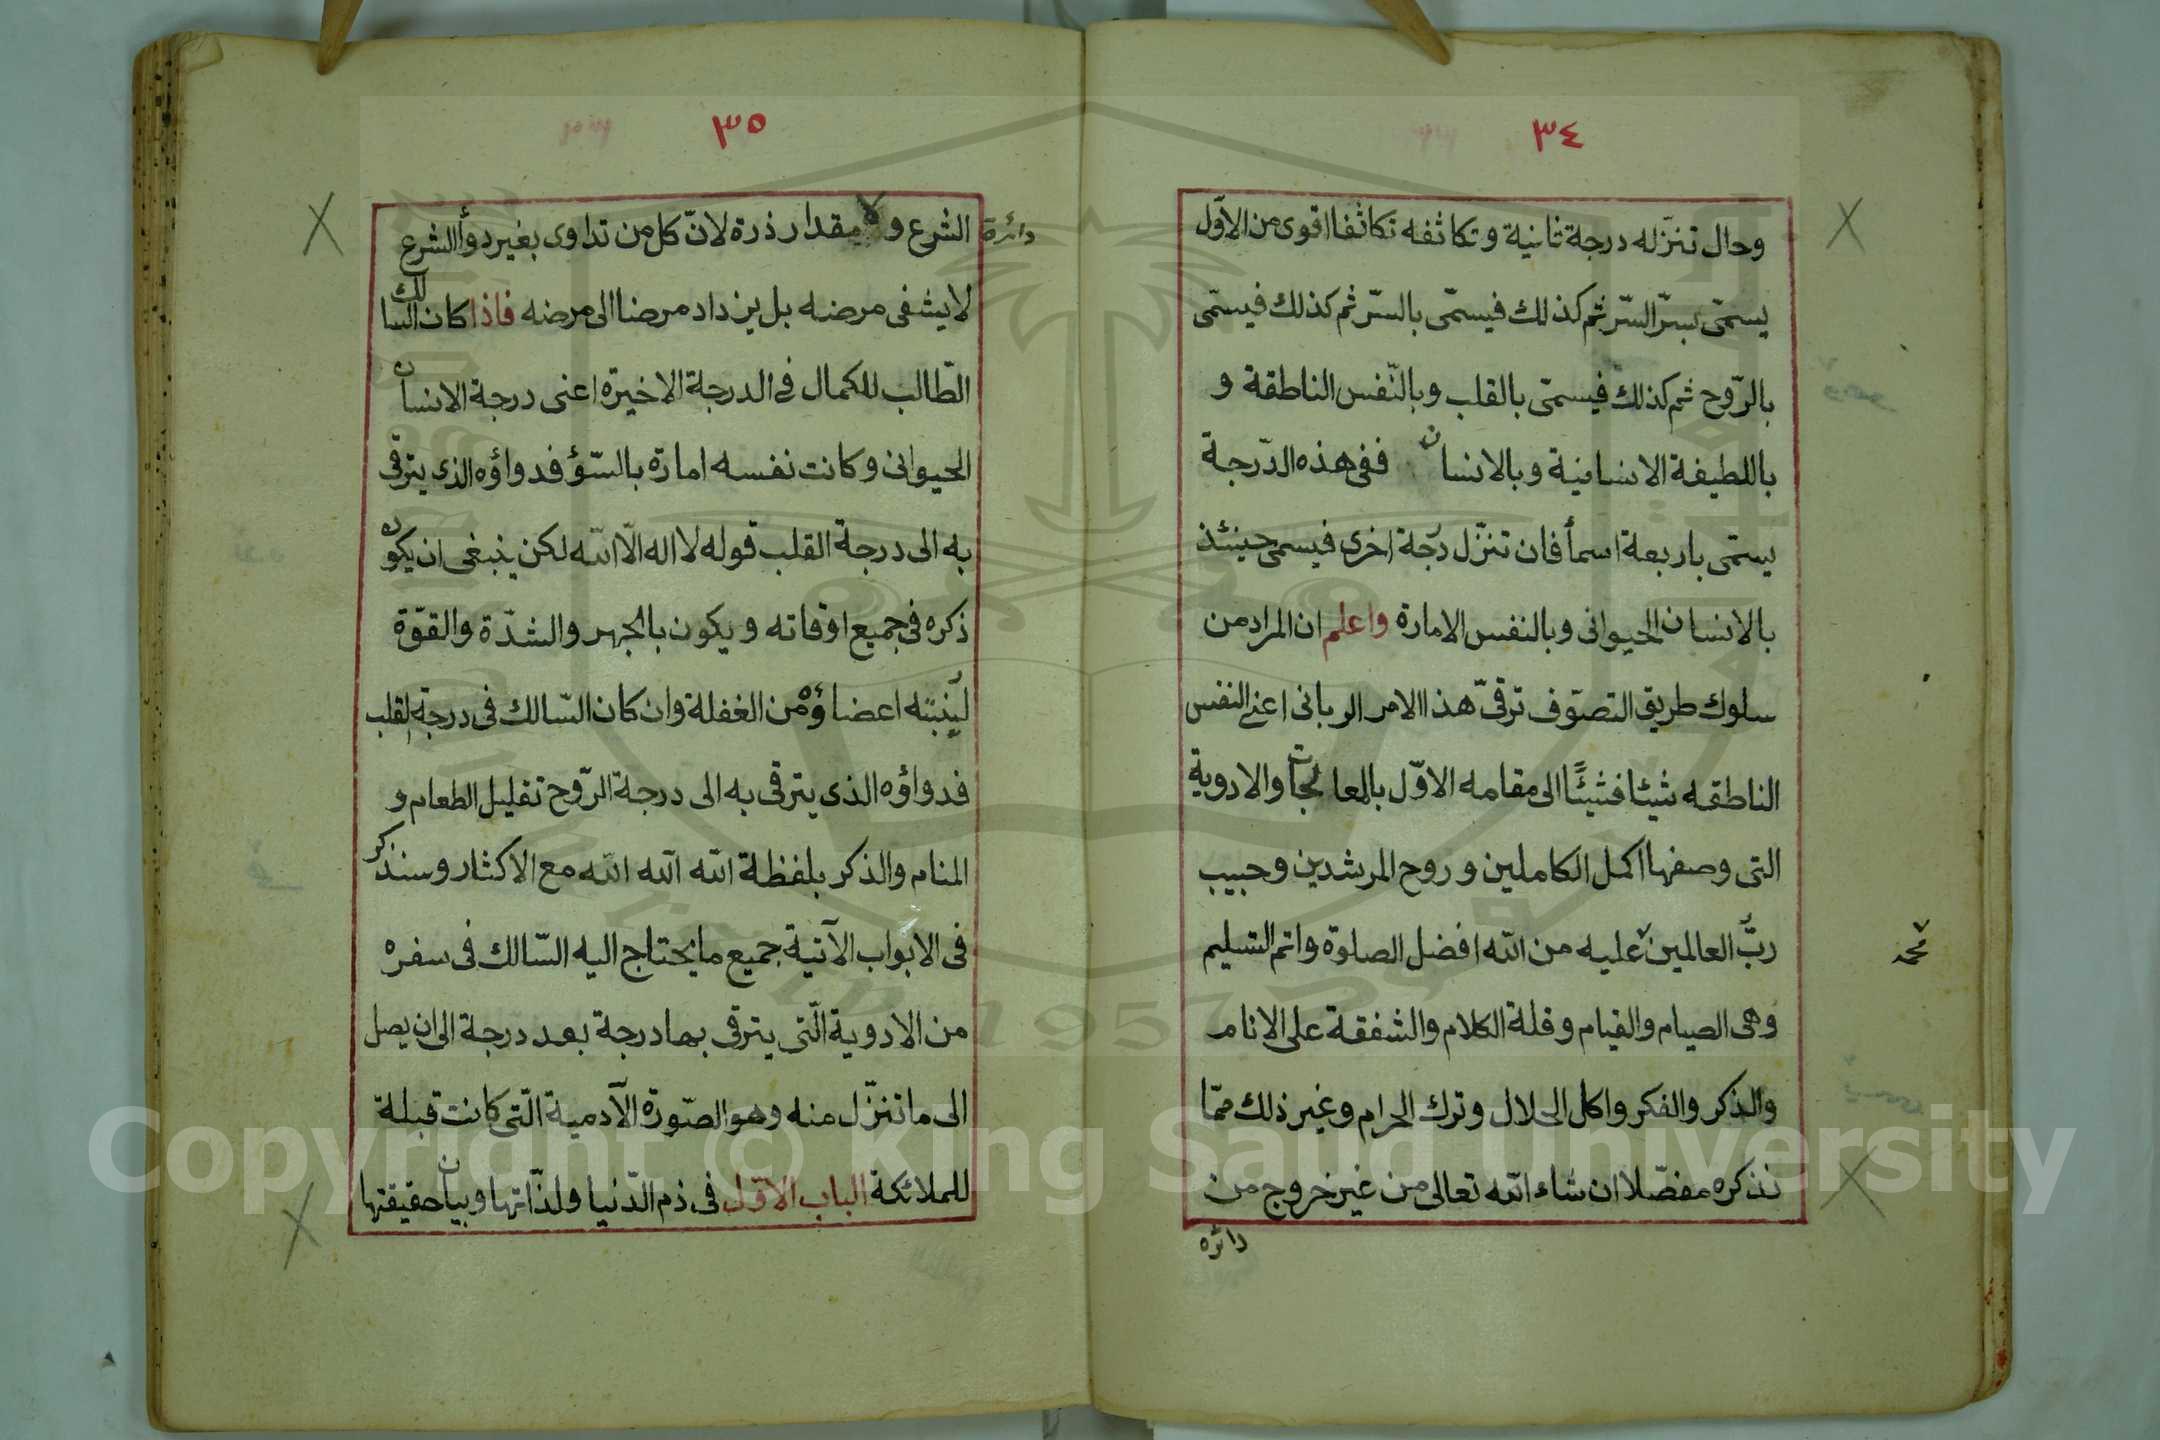 ٣٤
وحال تنزّله درجة ثانية وتكاثفه تكاثفا اقوى من الاوّل
يسمّى بسرّ السّر ثم كذلك فيسمّى بالسّر ثم كذلك فيسمّى
بالرّوح ثم كذلك فيسمّى بالقلب وبالنّفس الناطقة و
باللطيفة الانسانية وبالانسان ففى هذه الدّرجة
يسمّى باربعة اسمأ فان تنزّل درجة اخرى فيسمى حينئذ
بالانسان الحيوانى وبالنفس الامارة واعلم ان المراد من
سلوك طريق التصوّف ترقىّ هذا الامر الربانى اعنى النفس
الناطقه شيئا فشيئًا الى مقامه الاوّل بالمعالجات والادوية
التى وصفها اكمل الكاملين وروح المرشدين وحبيب
ربّ العالمين عليه من اللّه افضل الصلوة واتم التسليم
محمد
وهى الصيام والقيام وقلة الكلام والشفقة على الانام
والذكر والفكر واكل الحلال وترك الحرام وغير ذلك ممّا
نذكره مفصّلا ان شاء اللّه تعالى من غير خروج من
دائره
٣٥
دائرة
الشرع ولا مقدار ذرة لانّ كل من تداوى بغير دوأ الشرع
لا يشفى مرضه بل يزداد مرضا الى مرضه فاذا كان السالك
الطّالب للكمال فى الدرجة الاخيرة اعنى درجة الانسان
الحيوانى وكانت نفسه امارة بالسّؤ فدواؤه الذى يترقى
به الى درجة القلب قوله لا اله الّا اللّه لكن ينبغى ان يكون
ذكره فى جميع اوقاته ويكون بالجهر والشدّة والقوّة
لينبّه اعضاؤه من الغفلة وان كان السّالك فى درجة القلب
فدواؤه الذى يترقى به الى درجة الرّوح تقليل الطعام و
المنام والذكر بلفظة اللّه اللّه اللّه مع الاكثار وسنذكر
فى الابواب الآتية جميع ما يحتاج اليه السّالك فى سفره
من الادوية الّتى يترقى بها درجة بعد درجة الى ان يصل
الى ما تنزّل منه وهو الصّورة الآدمية الّتى كانت قبلة
للملائكة الباب الاوّل فى ذم الدّنيا ولذّاتها وبيان حقيقتها
Copyright © King Saud University
1957